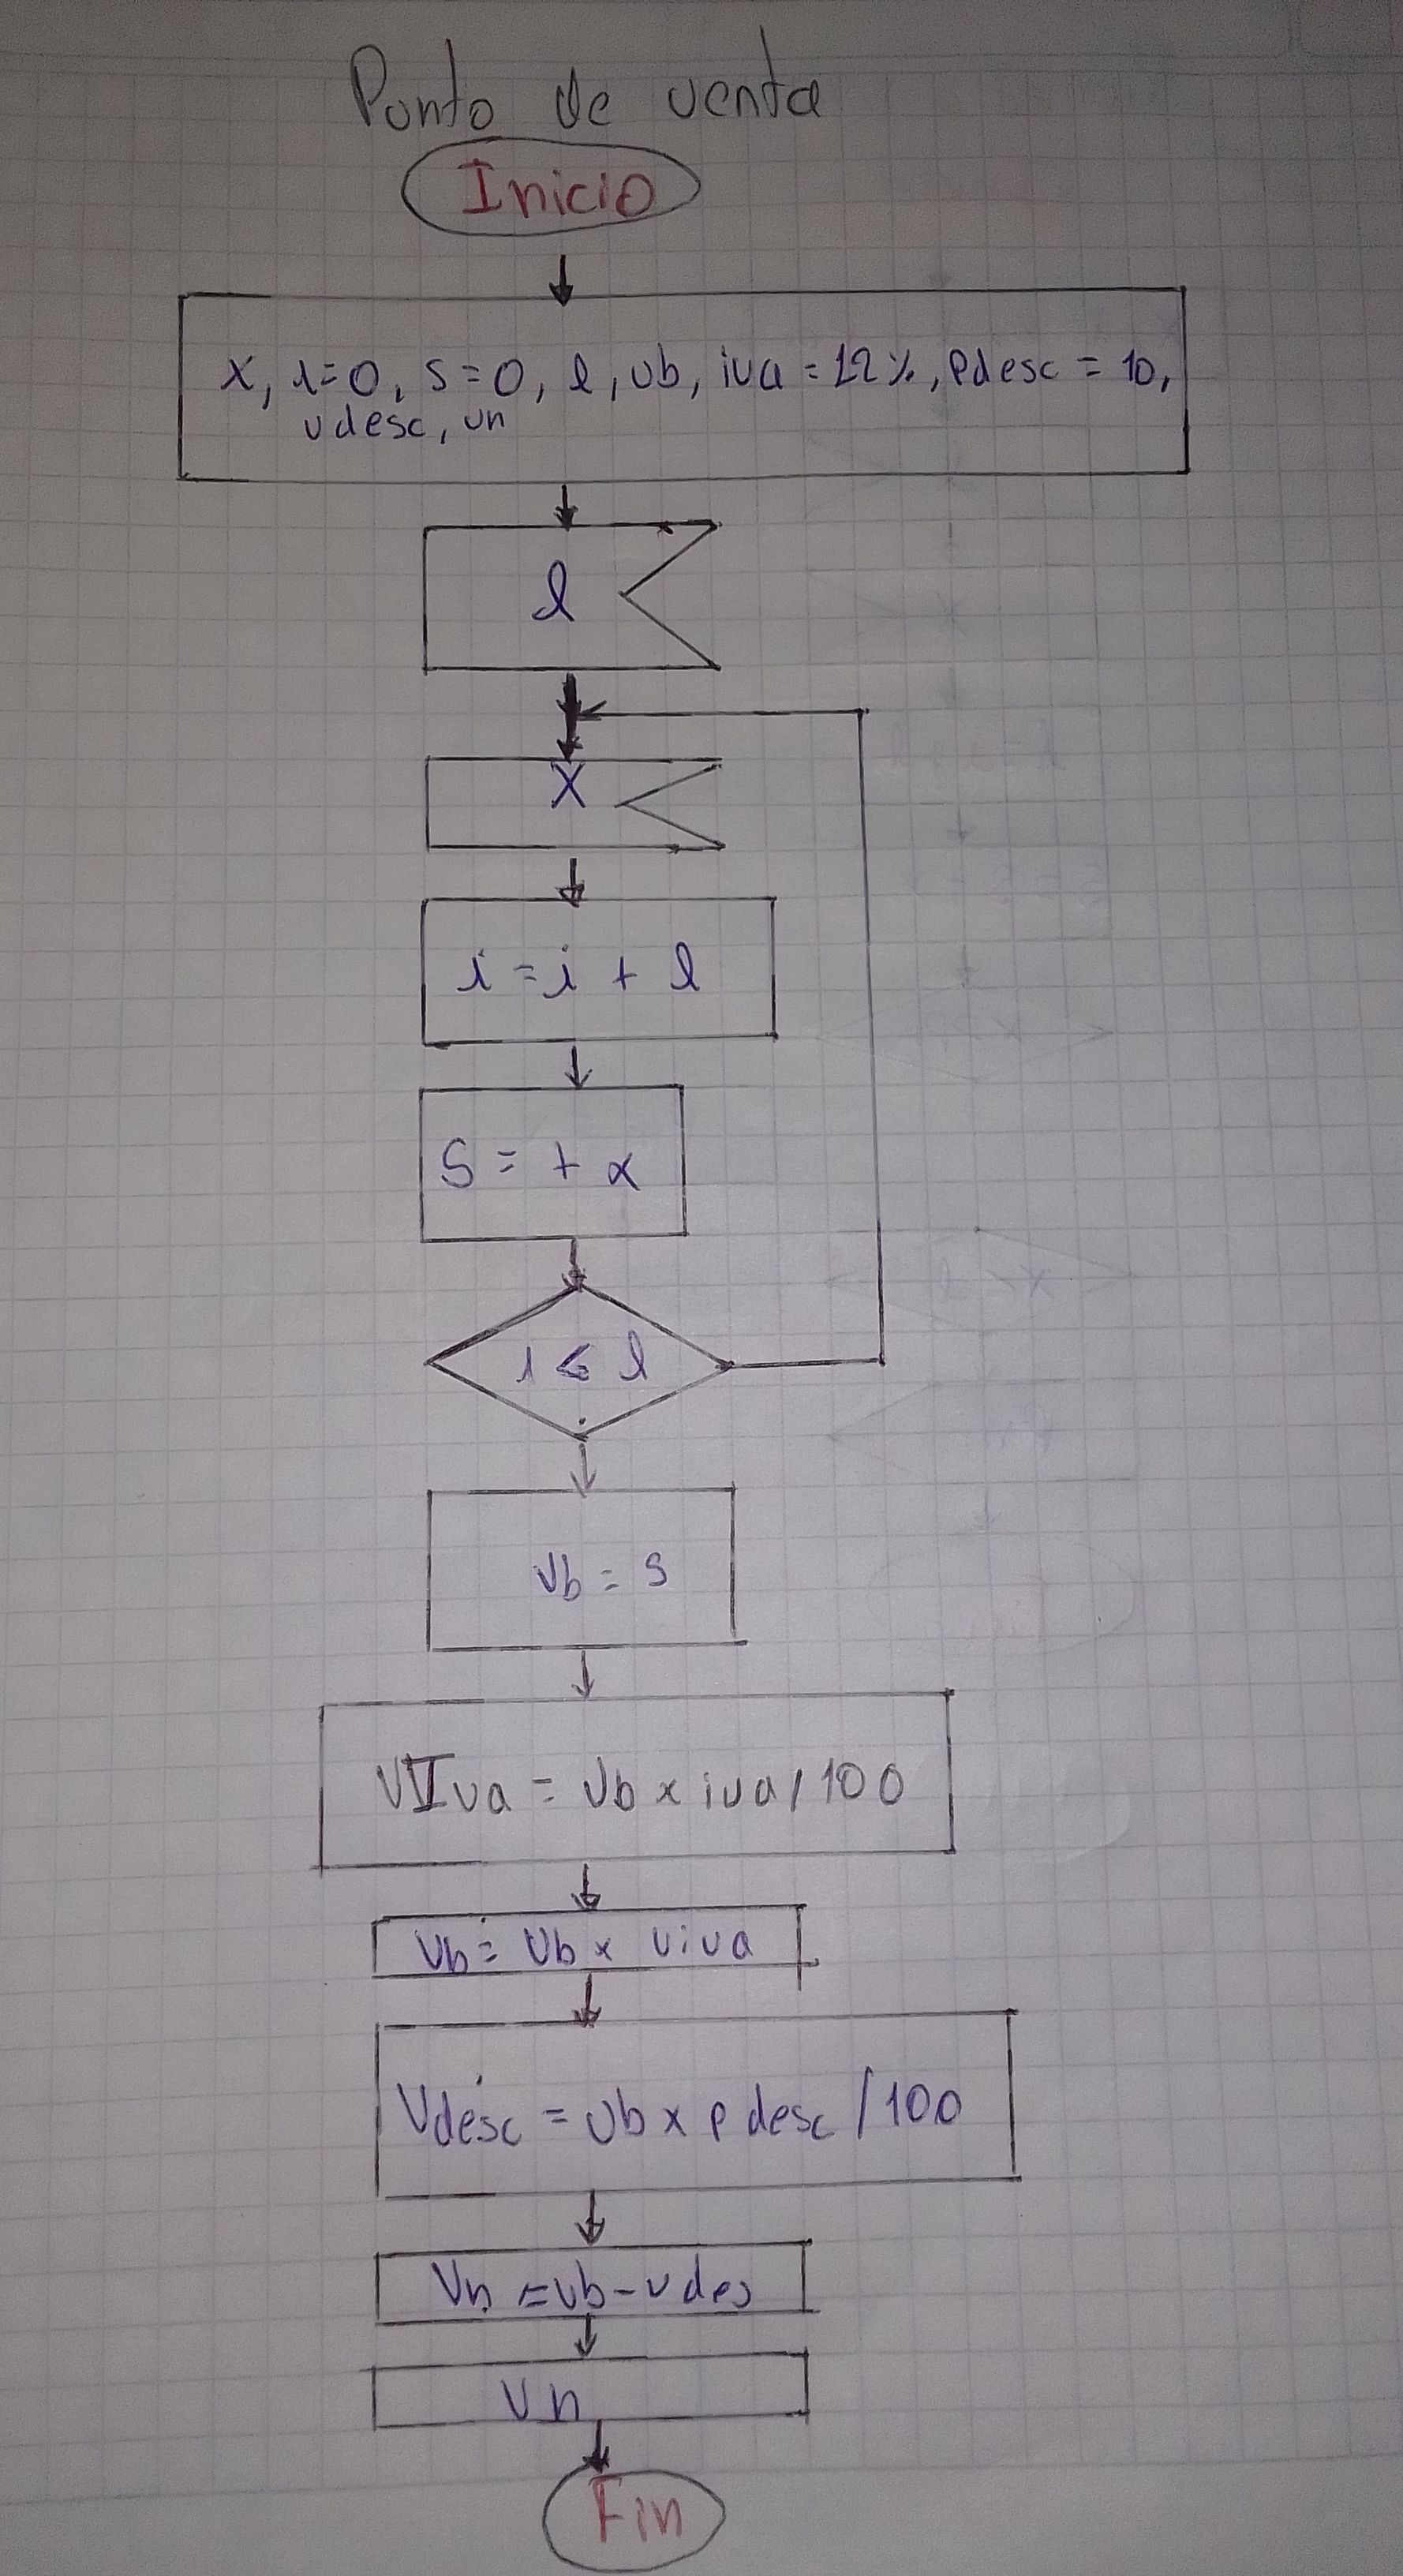 Punto de venta
Inicio
x, i=0, s=0, l, vb, iva = 12%, Pdesc = 10,
vdesc, vn
l
X
i = i + l
S = + x
i ≤ l
Vb = s
VIva = Vb x iva / 100
Vb = Vb x viva
Vdesc = Vb x p desc / 100
Vn = vb - v des
Vn
Fin